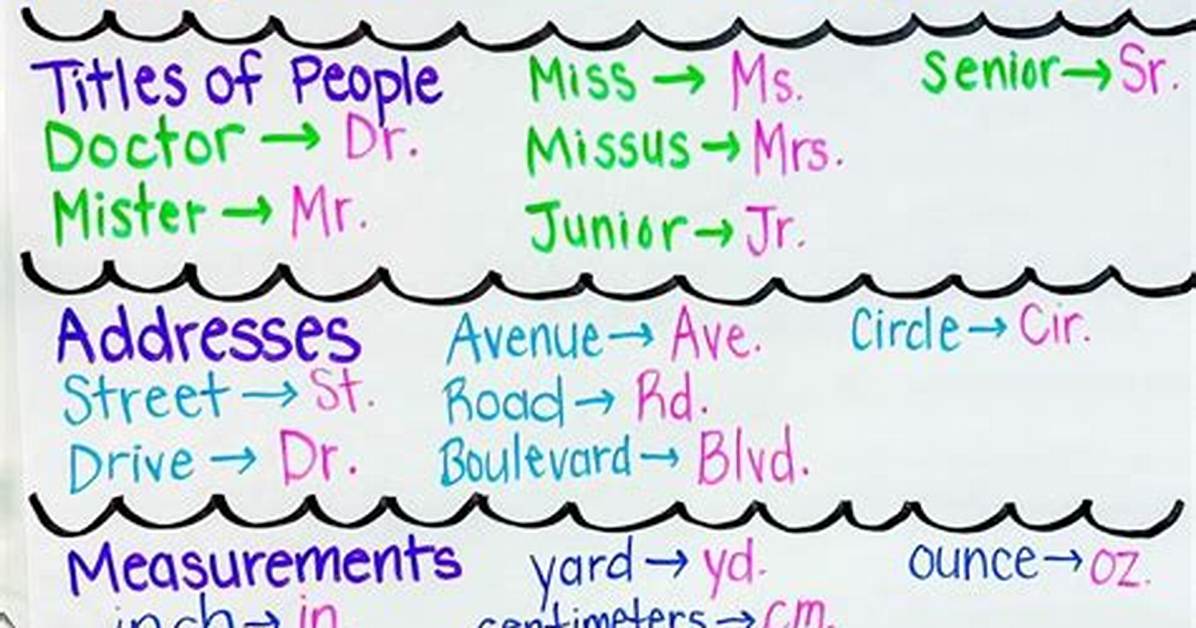 Titles of People
Doctor → Dr.
Mister → Mr.
Miss → Ms.
Missus → Mrs.
Junior → Jr.
Senior → Sr.
Addresses
Street → St.
Drive → Dr.
Avenue → Ave.
Road → Rd.
Boulevard → Blvd.
Circle → Cir.
Measurements
inch → in
yard → yd.
centimeters → cm.
ounce → oz.